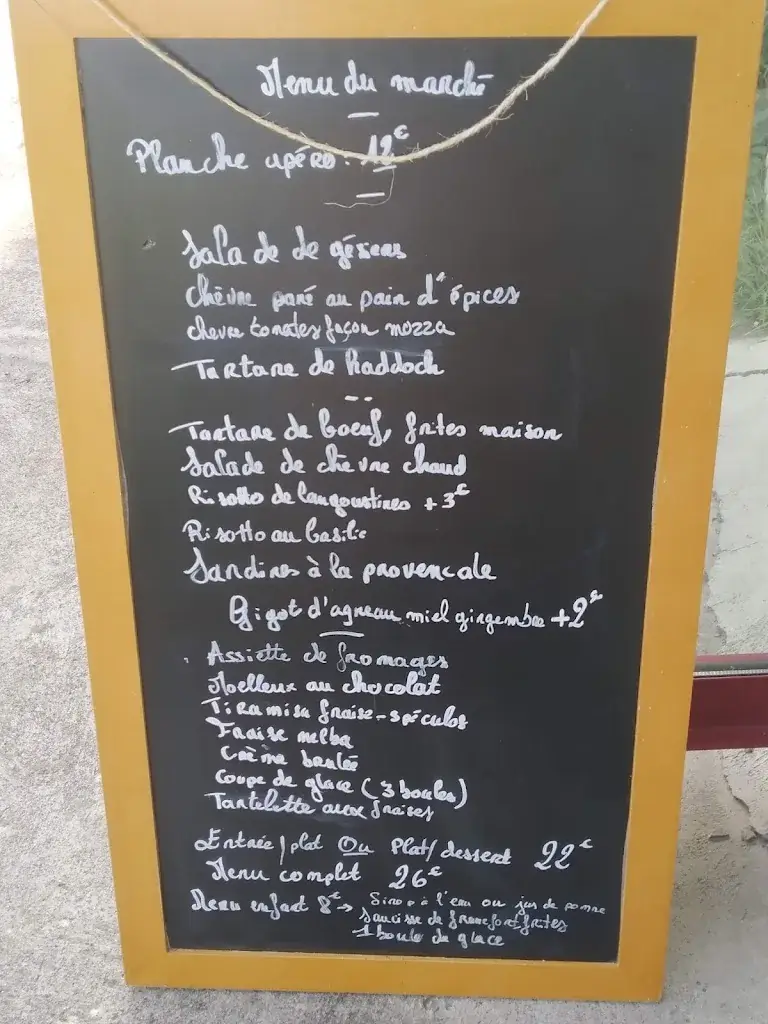 Menu du marché
Planche apéro. 12€
Salade de gésiers
chèvre pané au pain d'épices
chevre tomates façon mozza
Tartare de haddock
Tartare de boeuf, frites maison
Salade de chèvre chaud
Risotto de langoustines +3€
Risotto au basilic
Sardines à la provencale
Gigot d'agneau miel gingembre +2€
Assiette de fromages
Moelleux au chocolat
Tiramisu fraise-spéculos
Fraise melba
Crème brulée
Coupe de glace (3 boules)
Tartelette aux fraises
Entrée/plat Ou Plat/dessert 22€
Menu complet 26€
Menu enfant 8€ → Sirop à l'eau ou jus de pomme
saucisse de francfort frites
1 boule de glace